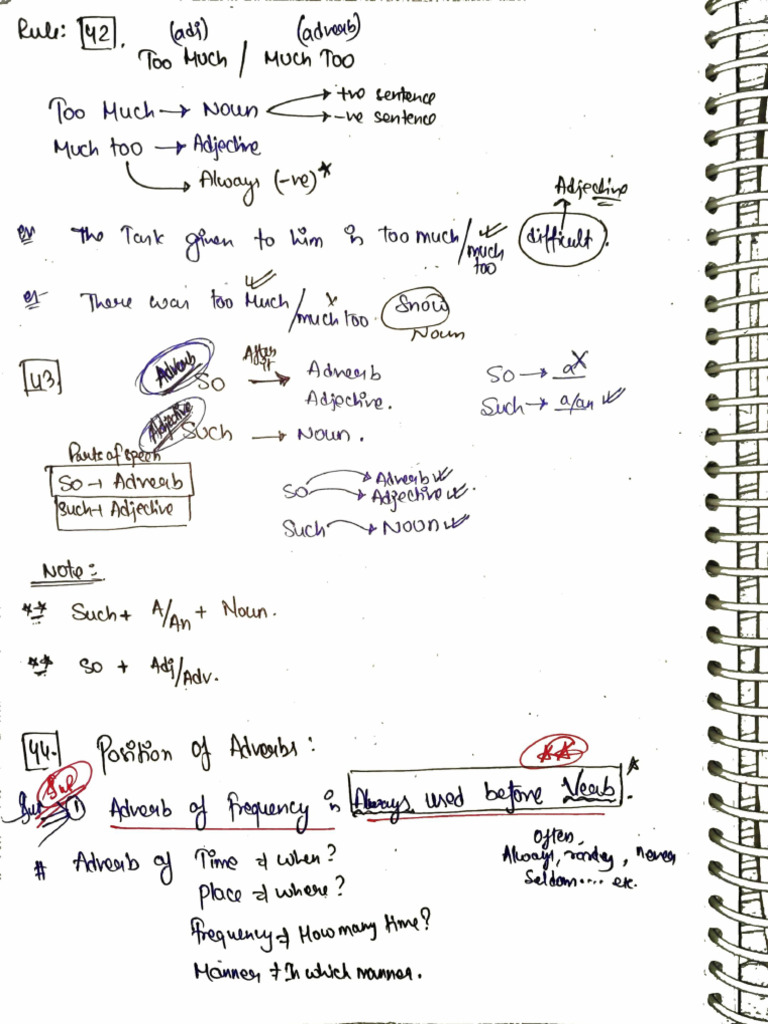 Rule: 42. (adj) (adverb)
Too Much / Much Too
Too Much → Noun → +ve sentence
→ -ve sentence
Much too → Adjective
→ Always (-ve)*
Adjective
ex The Task given to him is too much/much too difficult.
ex There was too Much/much too snow
Noun
43. Adverb So After it → Adverb
Adjective.
So → a X
Adjective Such → Noun.
Such → a/an ✓
Parts of speech
So → Adverb
Such → Adjective
So → Adverb ✓
→ Adjective ✓.
Such → Noun ✓
Note:
** Such + A/An + Noun.
** So + Adj/Adv.
44. Position of Adverbs:
**
① Adverb of frequency is Always used before Verb.*
# Adverb of Time → when?
Place → where?
Frequency → How many time?
Manner → In which manner.
Often,
Always, rarely, never
Seldom.... etc.